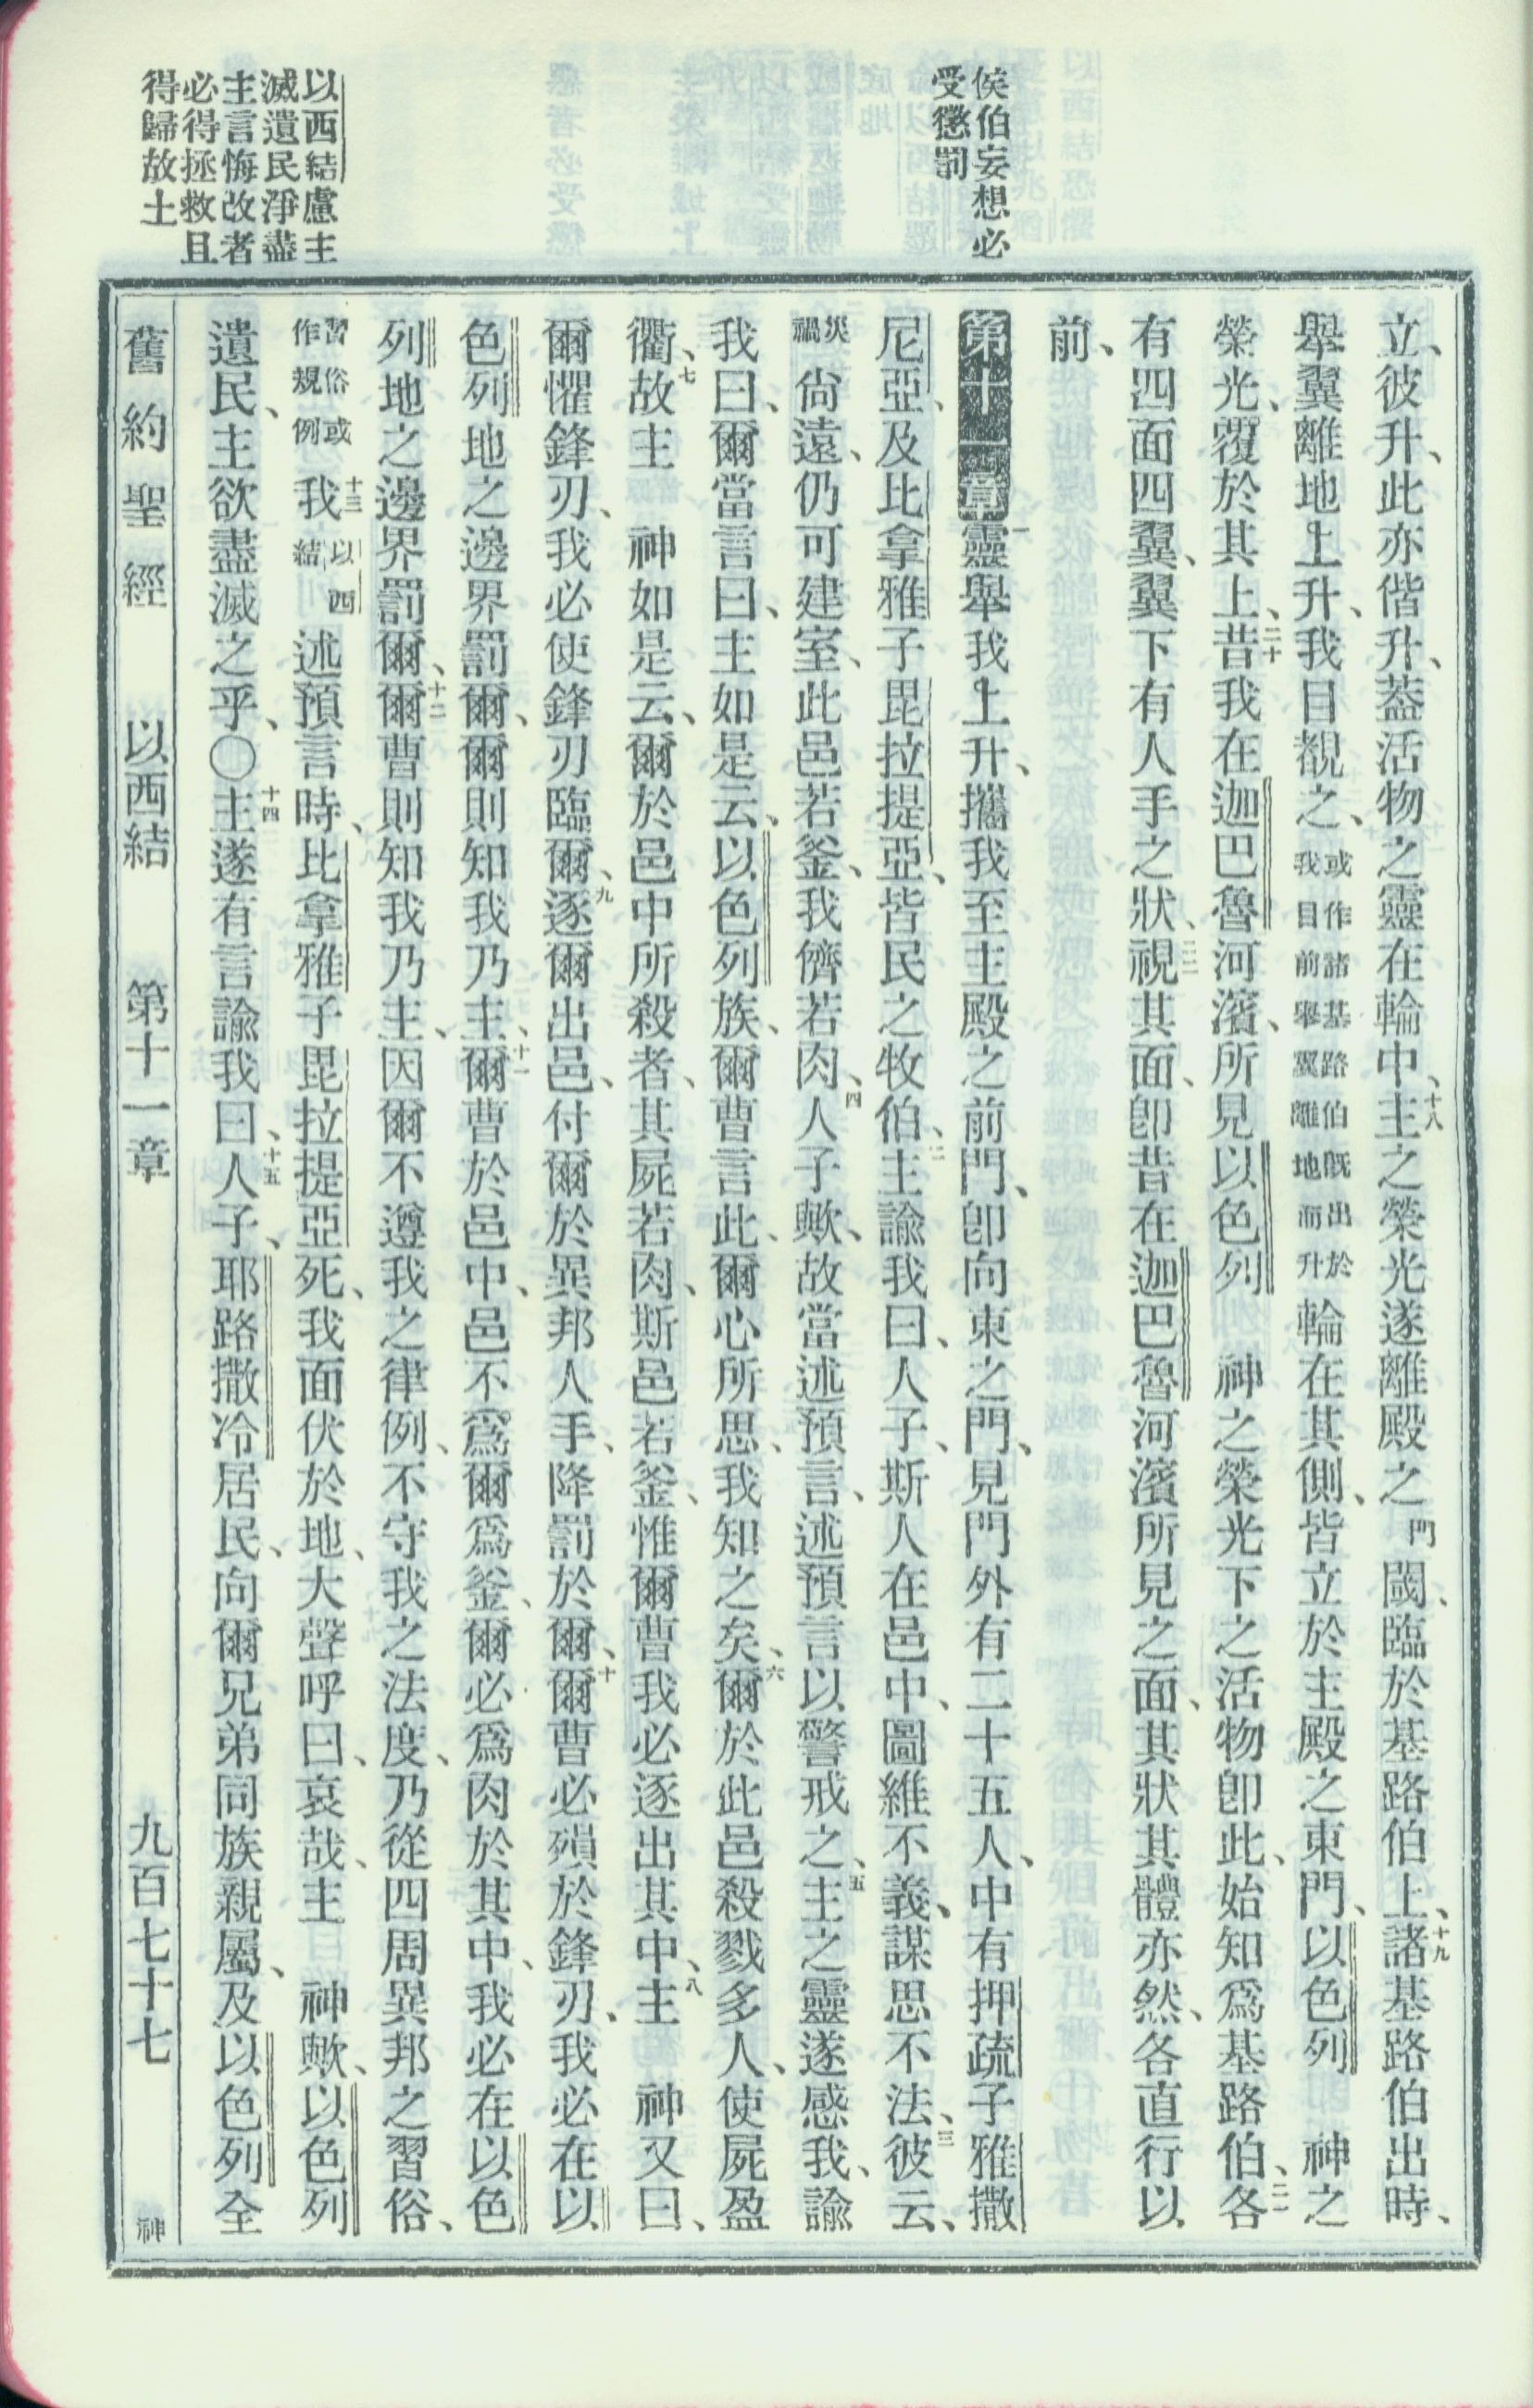 侯伯妄想必
受懲罰
以西結慮主
滅遺民淨盡
主言悔改者
必得拯救且
得歸故土
立、彼升、此亦偕升、葢活物之靈在輪中、十八主之榮光遂離殿之門閾、臨於基路伯上、十九諸基路伯出時、
舉翼離地上升、我目覩之、或作諸基路伯旣出於我目前舉翼離地而升輪在其側、皆立於主殿之東門、以色列　神之
榮光、覆於其上、二十昔我在迦巴魯河濱、所見以色列　神之榮光下之活物卽此、始知爲基路伯、二一各
有四面四翼、翼下有人手之狀、二二視其面、卽昔在迦巴魯河濱所見之面、其狀其體亦然、各直行以
前、
第十一章一靈舉我上升、攜我至主殿之前門、卽向東之門、見門外有二十五人、中有押疏子雅撒
尼亞、及比拿雅子毘拉提亞、皆民之牧伯、二主諭我曰、人子、斯人在邑中、圖維不義、謀思不法、三彼云、
災禍尙遠、仍可建室、此邑若釜、我儕若肉、四人子歟、故當述預言、述預言以警戒之、五主之靈遂感我、諭
我曰、爾當言曰、主如是云、以色列族、爾曹言此、爾心所思、我知之矣、六爾於此邑殺戮多人、使屍盈
衢、七故主　神如是云、爾於邑中所殺者、其屍若肉、斯邑若釜、惟爾曹我必逐出其中、八主　神又曰、
爾懼鋒刃、我必使鋒刃臨爾、九逐爾出邑、付爾於異邦人手、降罰於爾、十爾曹必殞於鋒刃、我必在以
色列地之邊界罰爾、爾則知我乃主、十一爾曹於邑中、邑不爲爾爲釜、爾必爲肉於其中、我必在以色
列地之邊界罰爾、十二爾曹則知我乃主、因爾不遵我之律例、不守我之法度、乃從四周異邦之習俗、
習俗或作規例十三我以西結述預言時、比拿雅子毘拉提亞死、我面伏於地、大聲呼曰、哀哉、主　神歟、以色列
遺民、主欲盡滅之乎、〇十四主遂有言諭我曰、十五人子、耶路撒冷居民、向爾兄弟同族親屬、及以色列全
舊約聖經　以西結　第十一章　九百七十七　神